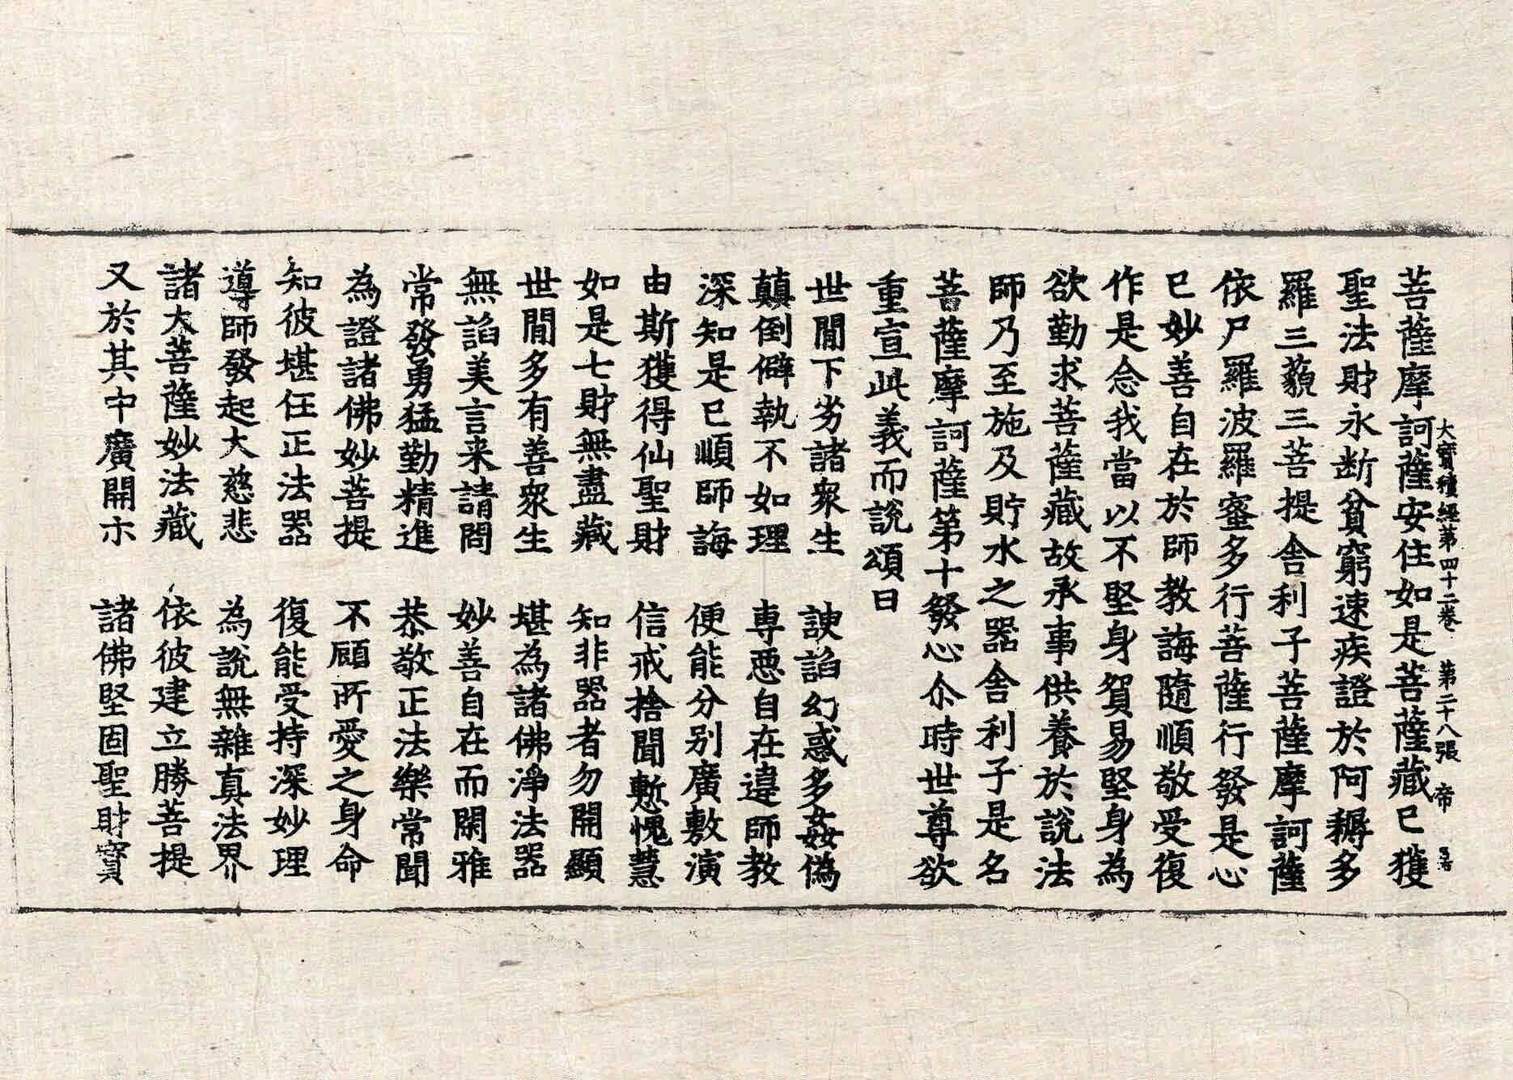 大寶積經第四十二卷 第二十八張 帝
菩薩摩訶薩安住如是菩薩藏已獲
聖法財永断貧窮速疾證於阿耨多
羅三藐三菩提舍利子菩薩摩訶薩
依尸羅波羅蜜多行菩薩行發是心
已妙善自在於師教誨隨順敬受復
作是念我當以不堅身貿易堅身為
欲勤求菩薩藏故承事供養於說法
師乃至施及貯水之器舍利子是名
菩薩摩訶薩第十發心尒時世尊欲
重宣此義而說頌曰
世間下劣諸衆生 諛諂幻惑多姦偽
顛倒僻執不如理 專惡自在違師教
深知是已順師誨 便能分别廣敷演
由斯獲得仙聖財 信戒捨聞慙愧慧
如是七財無盡藏 知非器者勿開顯
世間多有善衆生 堪為諸佛淨法器
無諂美言来請問 妙善自在而閑雅
常發勇猛勤精進 恭敬正法樂常聞
為證諸佛妙菩提 不顧所愛之身命
知彼堪任正法器 復能受持深妙理
導師發起大慈悲 為說無雜真法界
諸大菩薩妙法藏 依彼建立勝菩提
又於其中廣開示 諸佛堅固聖財寶